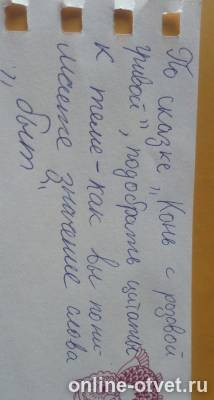 По сказке „Конь с розовой
гривой", подобрать цитаты
к теме - как вы пони-
маете значение слова
„быт"
online-otvet.ru